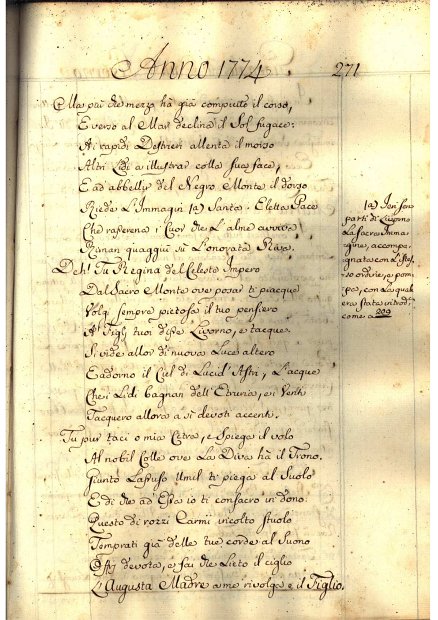 Anno 1774
271
Ma più che mezzo hà già compiuto il corso,
E verso al Mar declina il Sol fugace:
Ai rapidi Destrieri allenta il morso
Altri Lidi a illustrar colla sua face,
E ad abbellir del Negro Monte il dorso
Riede L'Immagin (a) Santa. Eletta Pace
Che rasserena i Cuor che L'alme avviva
Riman quaggiù sù L'onorata Riva.
Deh! Tu Regina del Celeste Impero
Dal Sacro Monte ove posar ti piacque
Volgi sempre pietosa il tuo pensiero
A i Figlj tuoi disse Livorno, e tacque.
Si vide allor di nuova Luce altero
E adorno il Ciel di Lucid'Astri, L'acque
Che i Lidi bagnan dell'Etruria, e i Venti
Tacquero allora a sì devoti accenti.
Tu pur taci o mia Cetra, e spiega il volo
Al nobil Colle ove La Diva hà il Trono.
Giunto Lassuso Umil ti piega al Suolo
E dì che ad Essa io ti consacro in dono.
Questo di rozzi Carmi incolto stuolo
Temprati già delle tue corde al Suono
Offrj devota, e fai che Lieto il ciglio
L'Augusta Madre a me rivolga e il Figlio.
(a) Jeri sen
partì di Livorno
La Sacra Imma-
gine, accompa-
gnata con L'istes-
so ordine, e pom-
pa, con La quale
era stata introd.
come a 209